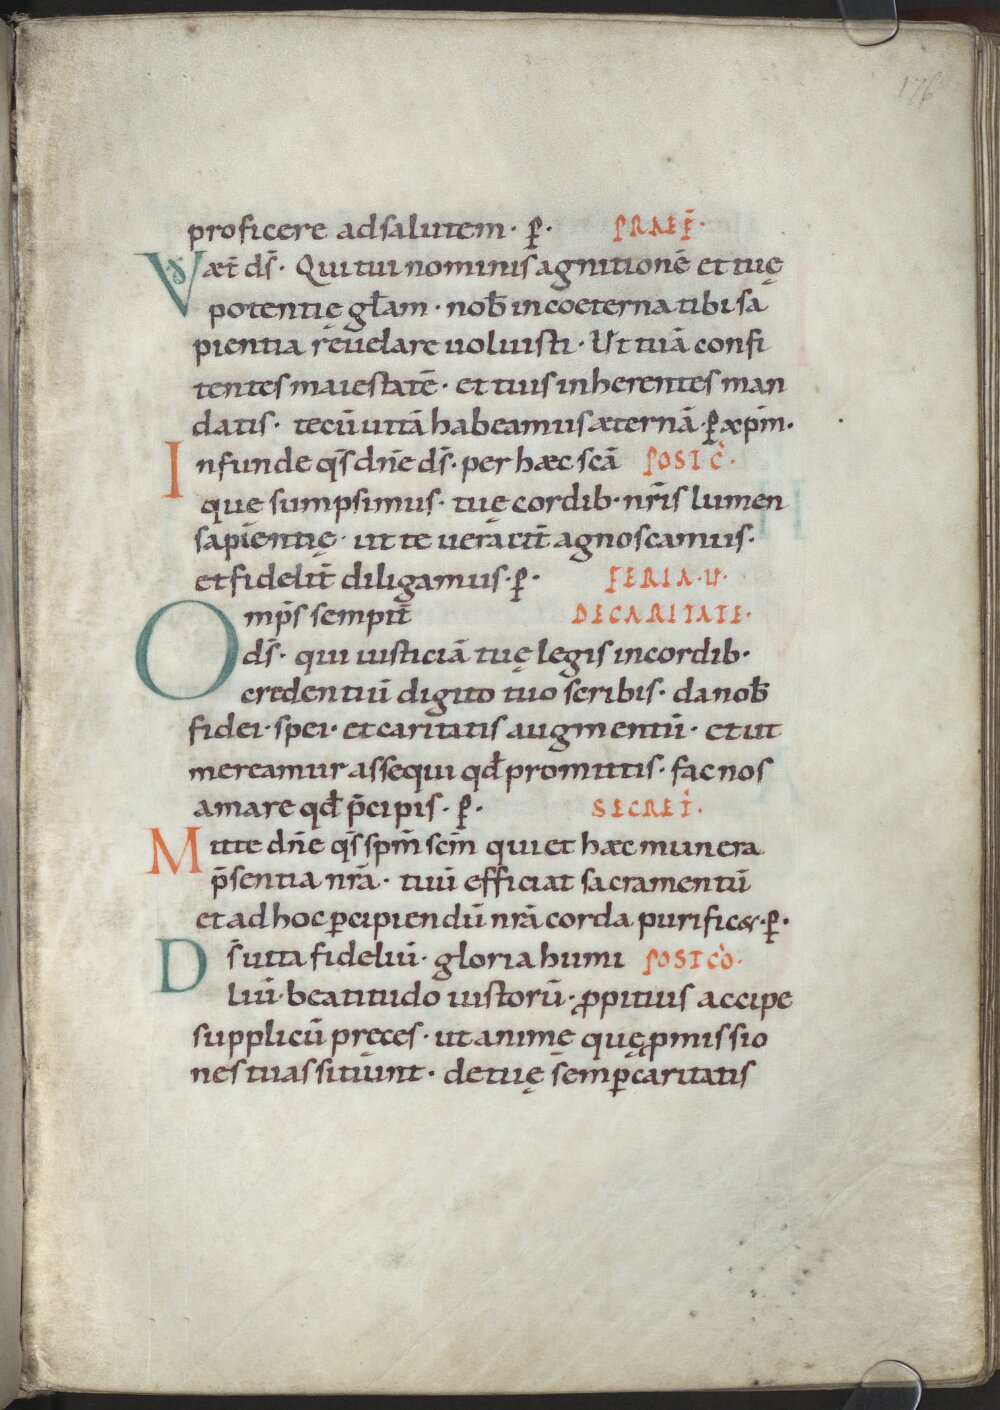 176
proficere ad salutem · p̱. PRAEF̄.
VD æt̄ dś. Qui tui nominis agnitionē et tuę
potentię głam · nob̄ in coeterna tibi sa
pientia reuelare uoluisti · Ut tuā confi
tentes maiestatē · et tuis inherentes man
datis · tecū uitā habeamus æternā · p̱ xp̄m.
Infunde qś dn̄e dś · per hæc scā POST C̄.
que sumpsimus · tuę cordib· nr̄is lumen
sapientię · ut te ueracit̄ agnoscamus ·
et fidelit̄ diligamus · p̱. FERIA · V ·
Omp̄s sempit̄ DE CARITATE ·
dś · qui iusticiā tuę legis in cordib·
credentiū digito tuo scribis · da nob̄
fidei · spei · et caritatis augmentū · et ut
mereamur assequi qđ promittis · fac nos
amare qđ p̄cipis · p̱. SECRET̄.
Mitte dn̄e qś sp̄m sc̄m qui et hæc munera
p̄sentia nr̄a · tuū efficiat sacramentū
et ad hoc ꝑcipiendū nr̄a corda purific& · p̱.
Dś uita fideliū · gloria humi POST CŌ.
liū · beatitudo iustorū · ꝓpitius accipe
supplicū pręces · ut animę quę ꝓmissio
nes tuas sitiunt · de tuę semꝑ caritatis